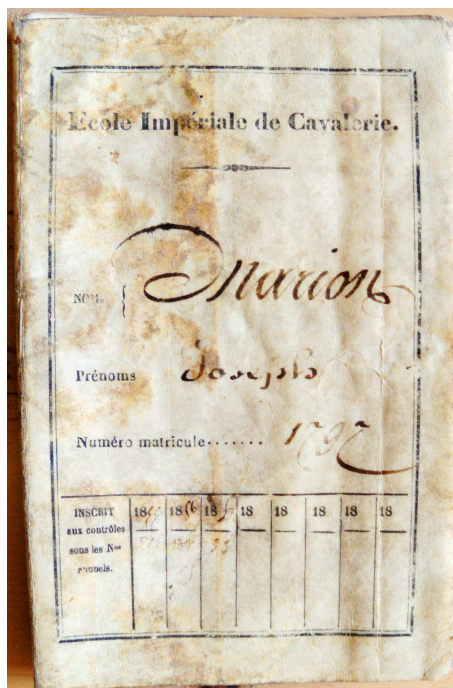 Ecole Impériale de Cavalerie.
NOM.
Marion
Prénoms Joseph
Numéro matricule....... 1797
INSCRIT
aux contrôles
sous les Nos
annuels.
18 18 18 18 18 18 18 18
33